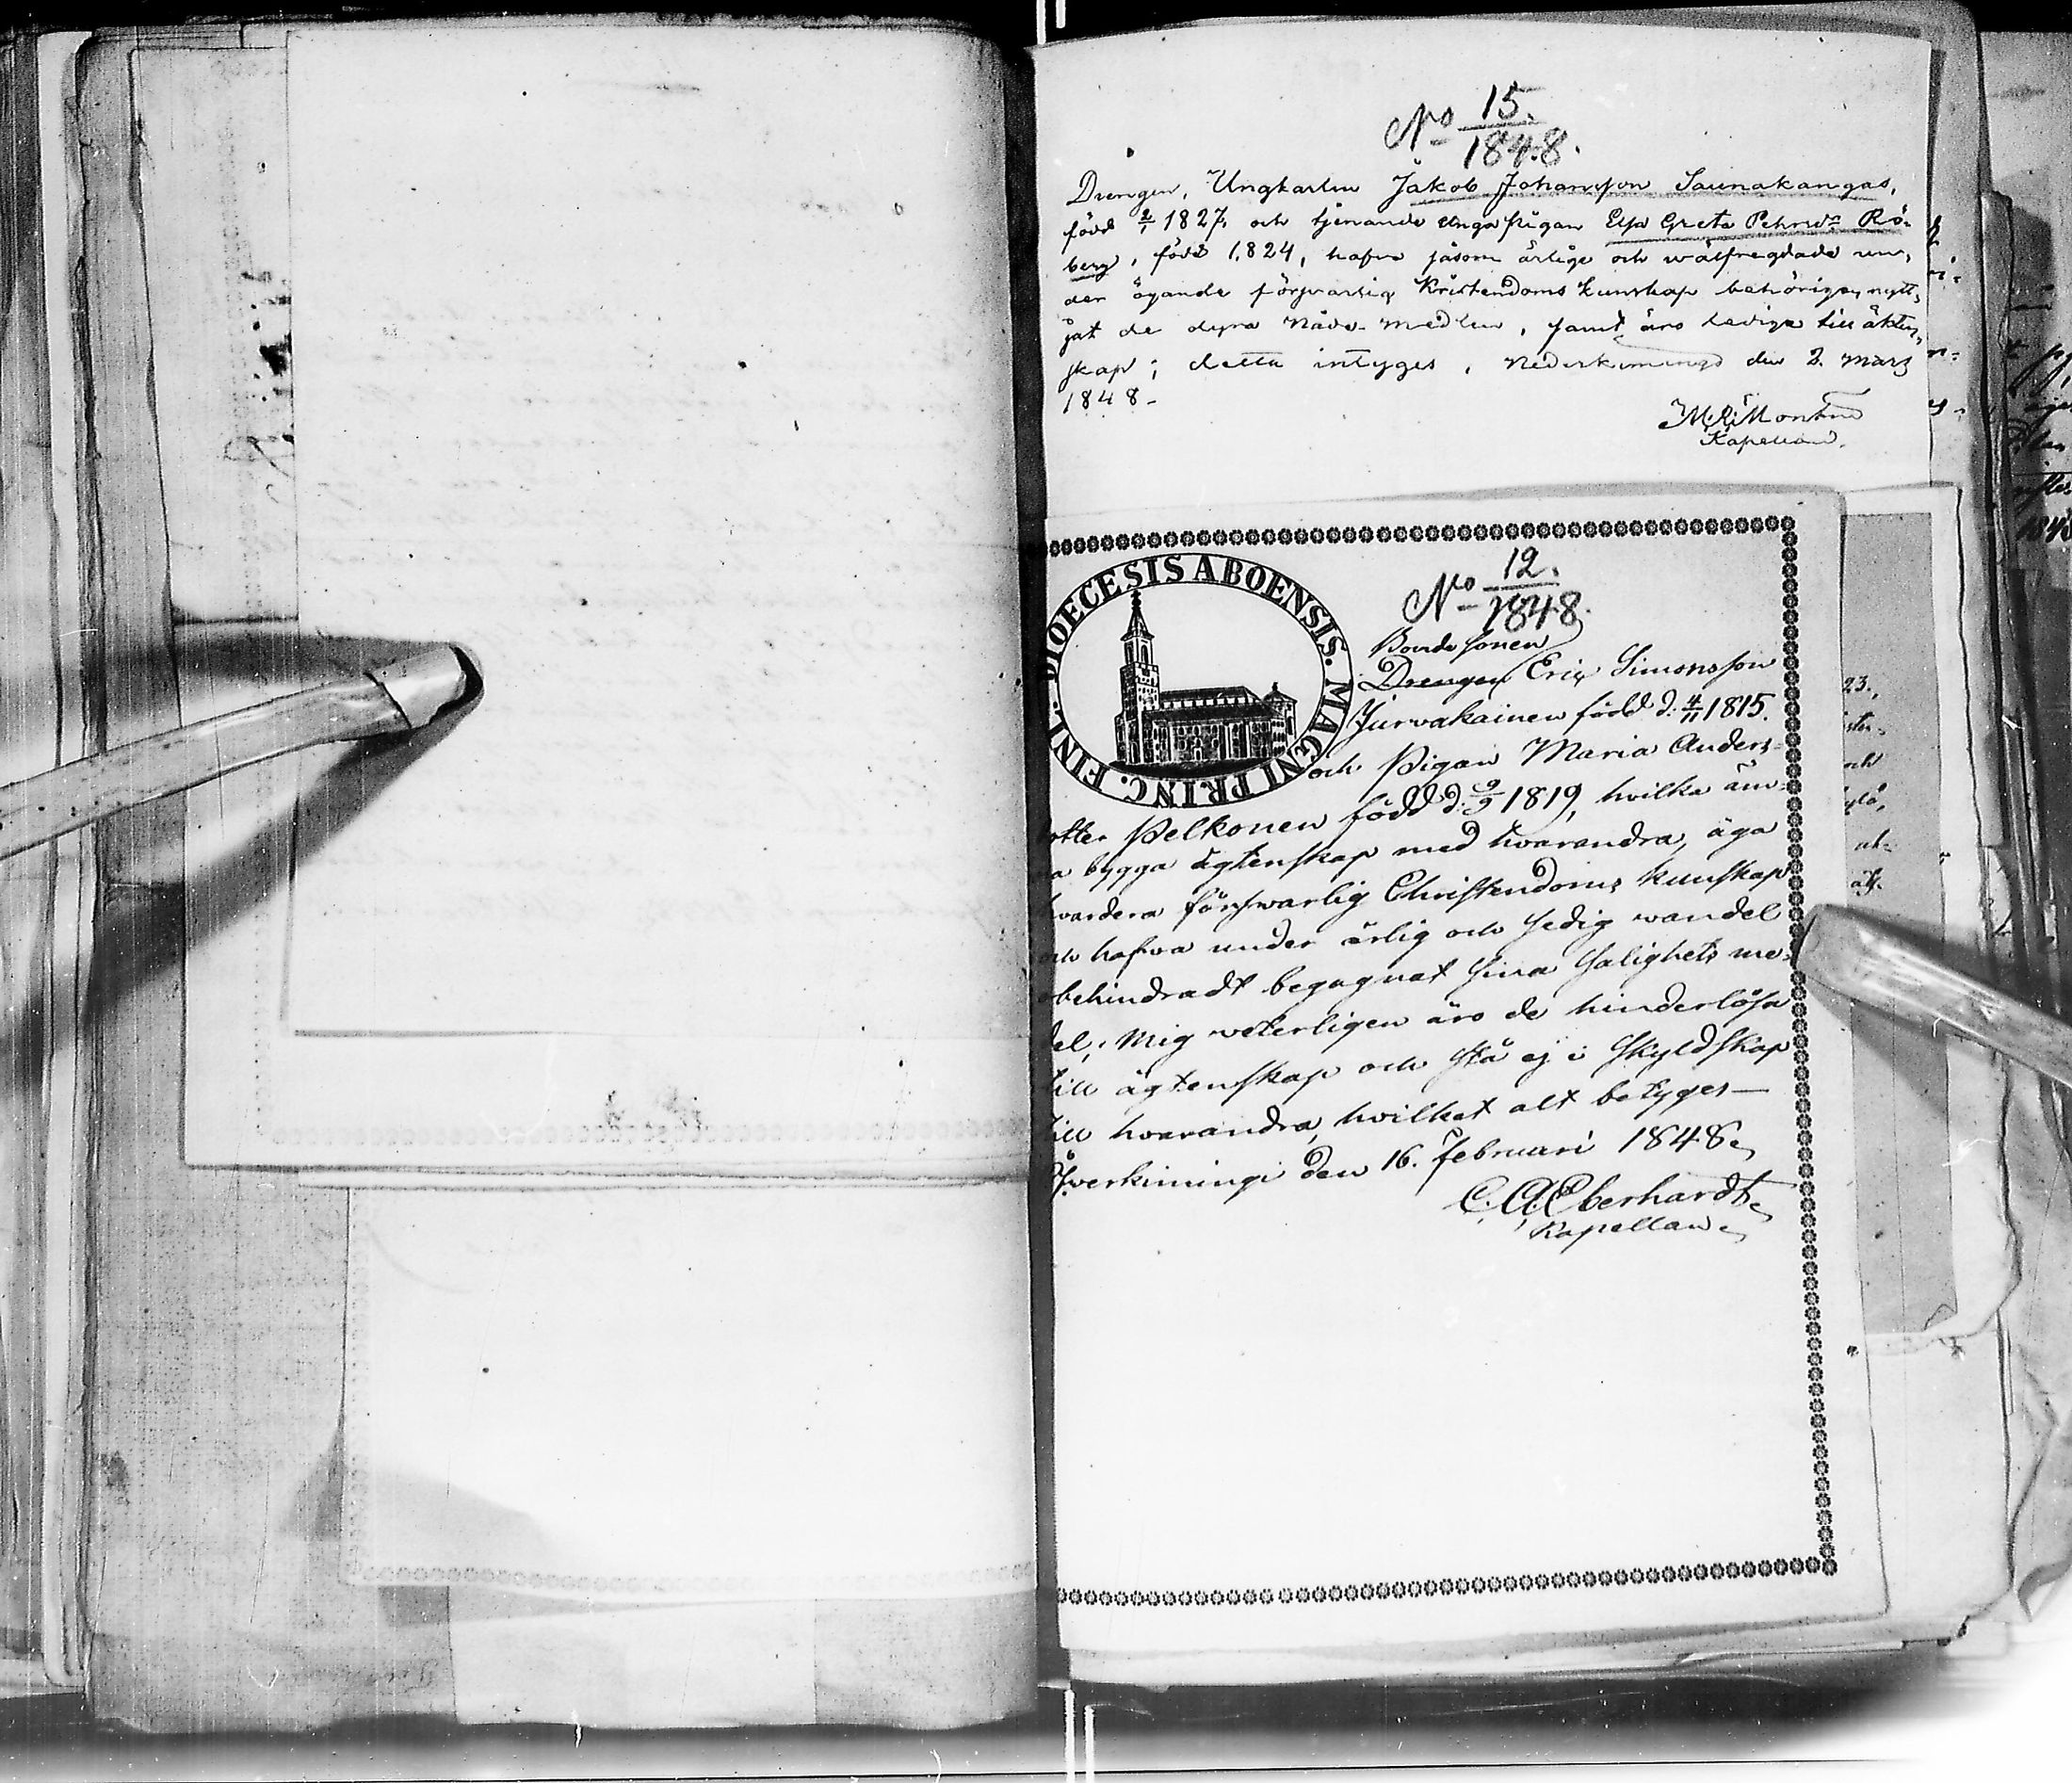 No 15.
1848.
Drengen, Ungkarlen Jakob Johansson Saunakangas,
född 2/1 1827, och tjenande unga pigan Elsa Greta Pehrsdr Rö-
berg, född 1824, hafva såsom ärlige och wälfregdade un-
der ägande försvarlig Kristendoms kunskap behörigen nytt-
jat de dyra Nåde-medlen, samt äro lediga till äkten-
skap; detta intyges, Nederkimingo den 2. Mars
1848-
Kapellan.
DIOECESIS ABOENSIS. MAGNI PRINC. FINL.
No 12.
1848.
Bonde sonen
Drengen Eric Simonsson
Jurvakainen född d: 4/11 1815.
och Pigan Maria Anders-
otter Pelkonen född d: 9/9 1819, hvilka äm-
a bygga ägtenskap med hvarandra, äga
hvardera försvarlig Christendoms kunskap
och hafva under ärlig och sedig wandel
obehindradt begagnat sina Salighets me-
del; Mig weterligen äro de hinderlösa
till ägtenskap och stå ej i Skyldskap
till hvarandra, hvilket alt betyges—
Öfverkimingi den 16. Februari 1848.
C. A. Eberhardt
Kapellan
23.,
och